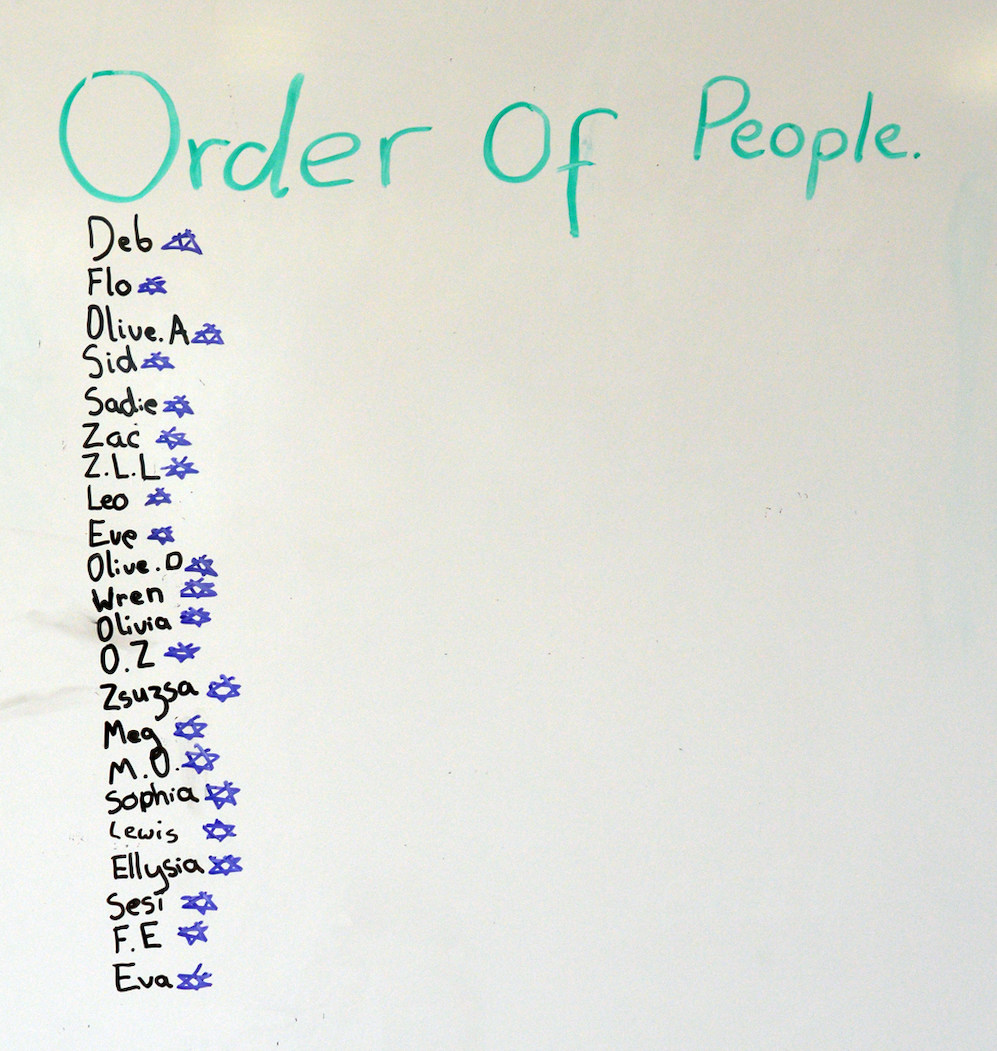 Order Of People.
Deb
Flo
Olive.A
Sid
Sadie
Zac
Z.L.L
Leo
Eve
Olive.D
Wren
Olivia
O.Z
Zsuzsa
Meg
M.O.
Sophia
Lewis
Ellysia
Sesi
F.E
Eva